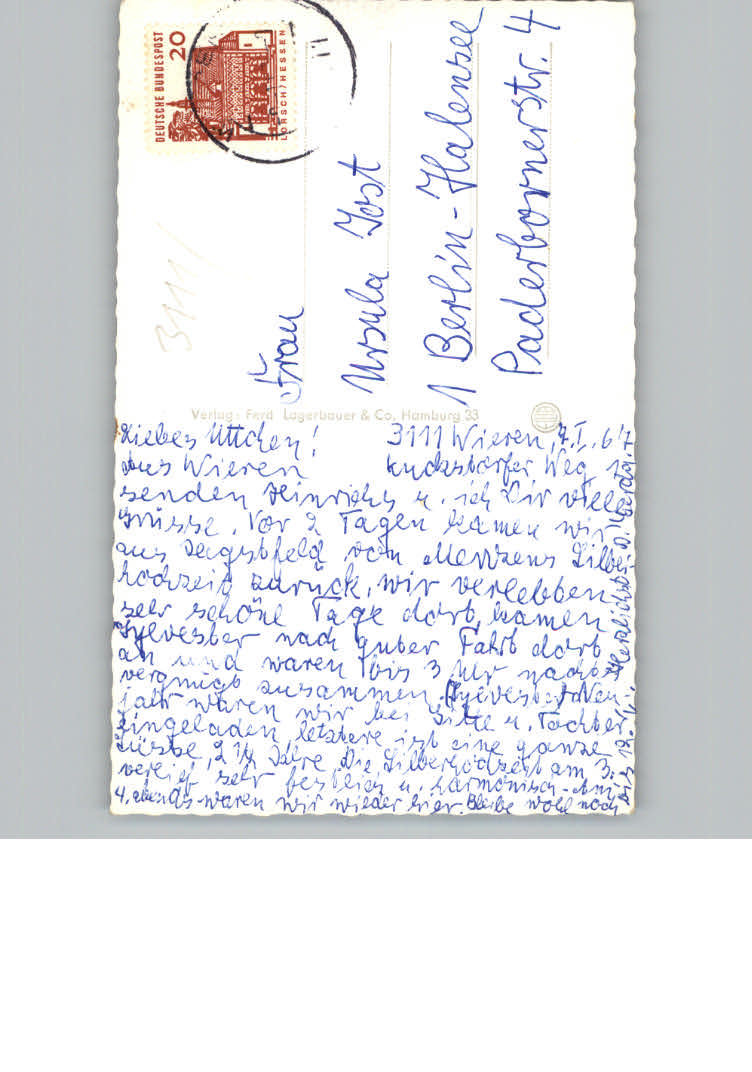 DEUTSCHE BUNDESPOST
20
LORSCH/HESSEN
3111/
Frau
Ursula Jost
1 Berlin-Halensee
Paderbornerstr. 4
Verlag: Ferd. Lagerbauer & Co. Hamburg 33
Liebes Uttchen! 3111 Wieren, 7.I.67
aus Wieren Weg
senden Heinrichs u. ich Dir viele
Grüsse. Vor 2 Tagen kamen wir
aus Jagstfeld von Silber-
hochzeit zurück, wir verlebten
sehr schöne Tage dort, kamen
Sylvester nach guter Fahrt dort
an und waren bis 3 Uhr nachts
vergnügt zusammen. Sylvester + Neu-
jahr waren wir bei u. Tochter
eingeladen, letztere ist eine ganze
Süsse, 2 1/4 Jahre. Die Silberhochzeit am 3.
verlief sehr festlich u. harmonisch. Am
4. abends waren wir wieder hier. Bleibe wohl noch
bis Herzlichst